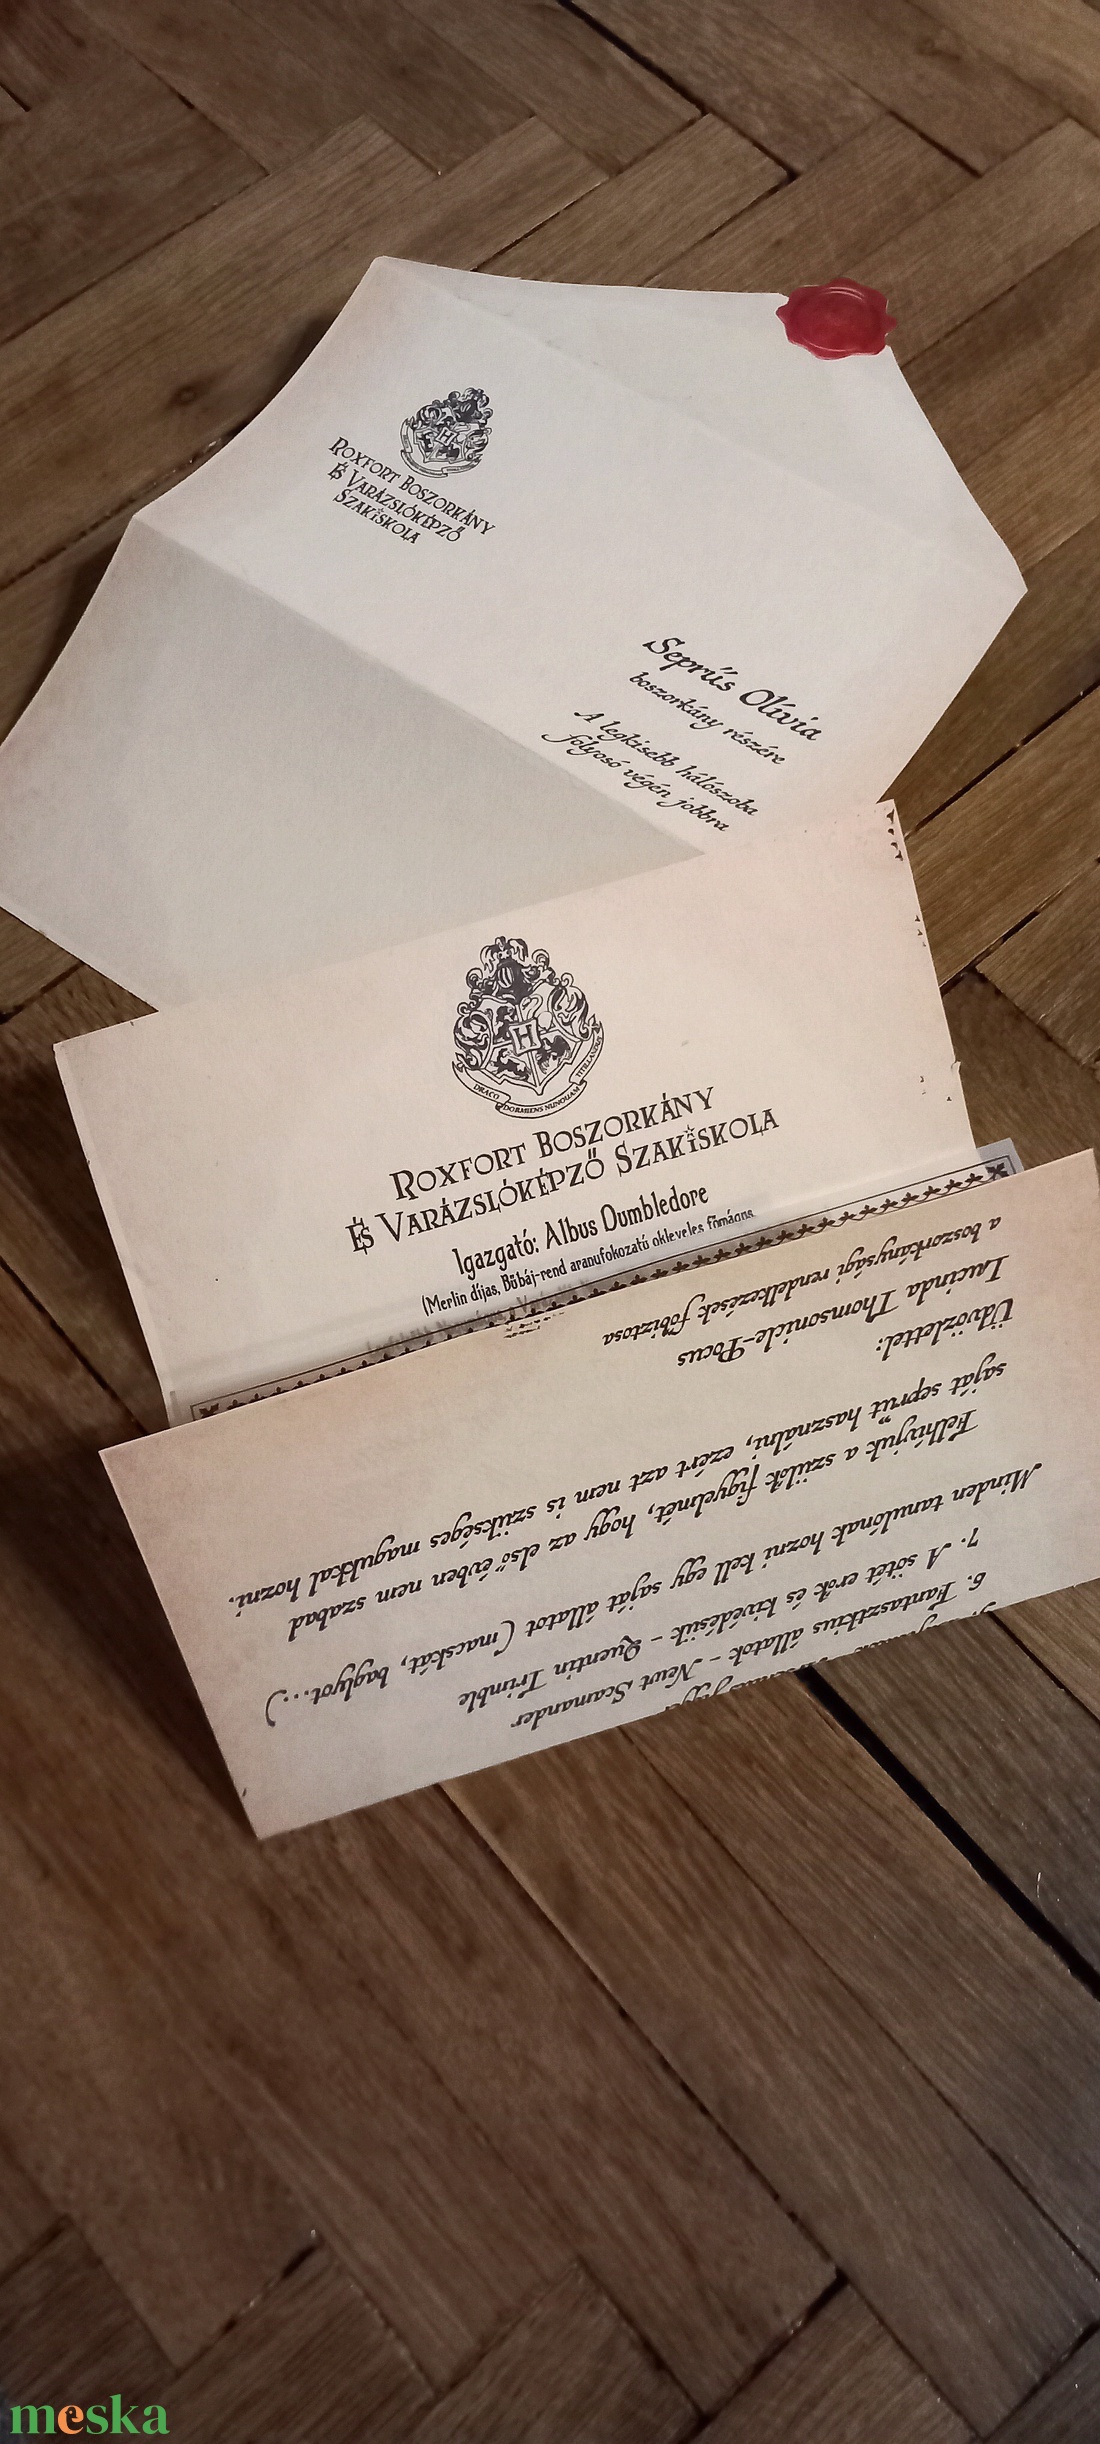 ROXFORT BOSZORKÁNY
ÉS VARÁZSLÓKÉPZŐ
SZAKISKOLA
Seprűs Olívia
boszorkány részére
A legkisebb hálószoba
folyosó végén jobbra
H
DRACO DORMIENS NUNQUAM TITILLANDUS
ROXFORT BOSZORKÁNY
ÉS VARÁZSLÓKÉPZŐ SZAKISKOLA
Igazgató: Albus Dumbledore
(Merlin díjas, Bűbáj-rend aranyfokozatú okleveles főmágus
6. Fantasztikus állatok - Newt Scamander
7. A sötét erők és kivédésük - Quentin Trimble
Minden tanulónak hozni kell egy saját állatot (macskát, baglyot...)
Felhívjuk a szülők figyelmét, hogy az első évben nem szabad
saját seprűt használni, ezért azt nem is szükséges magukkal hozni.
Üdvözlettel:
Lucinda Thomsonicle-Pocus
a boszorkánysági rendelkezések főbiztosa
meska